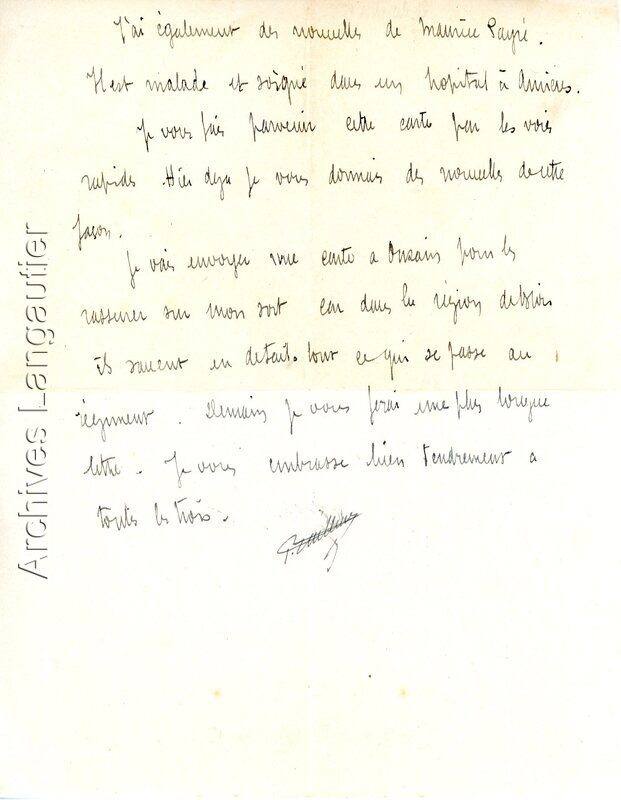 J'ai également des nouvelles de Maurice Payré.
Il est malade et soigné dans un hopital à Amiens.
Je vous fais parvenir cette carte par les voies
rapides. Hier deja je vous donnais des nouvelles de cette
façon.
Je vais envoyer une carte a Onzain pour les
rassurer sur mon sort car dans la région de Blois
ils savent en detail tout ce qui se passe au
régiment. Demain je vous ferai une plus longue
lettre. Je vous embrasse bien tendrement a
toutes les trois.
Archives Langautier